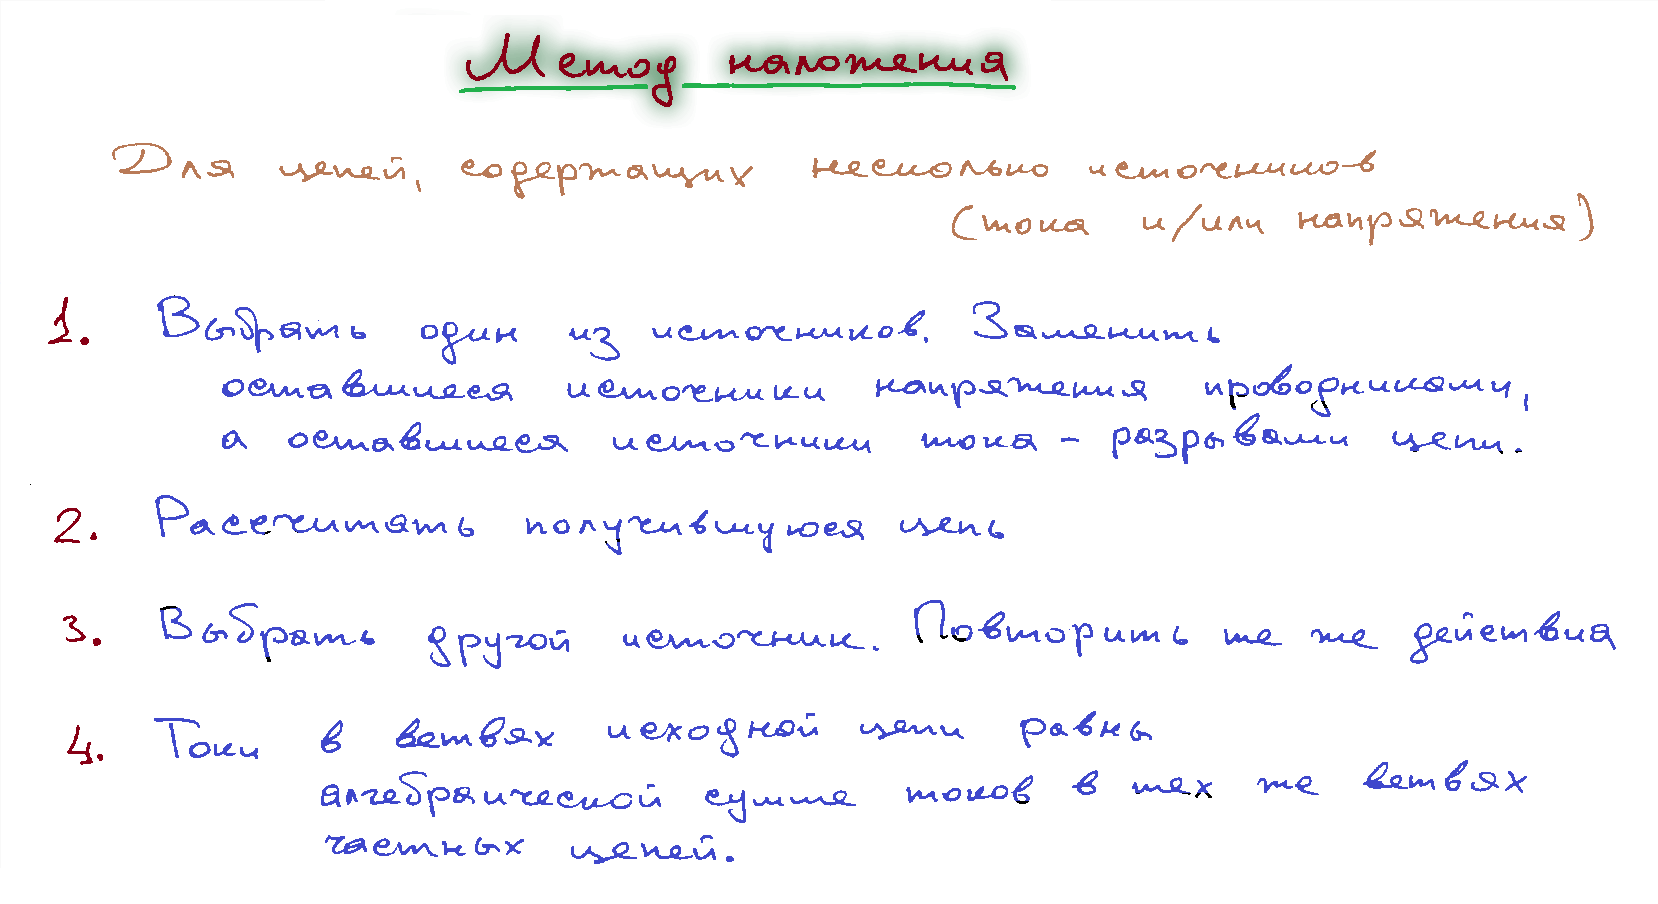 Метод наложения
Для цепей, содержащих несколько источников
(тока и/или напряжения)
1. Выбрать один из источников. Заменить
оставшиеся источники напряжения проводниками,
а оставшиеся источники тока - разрывами цепи.
2. Рассчитать получившуюся цепь
3. Выбрать другой источник. Повторить те же действия
4. Токи в ветвях исходной цепи равны
алгебраической сумме токов в тех же ветвях
частных цепей.